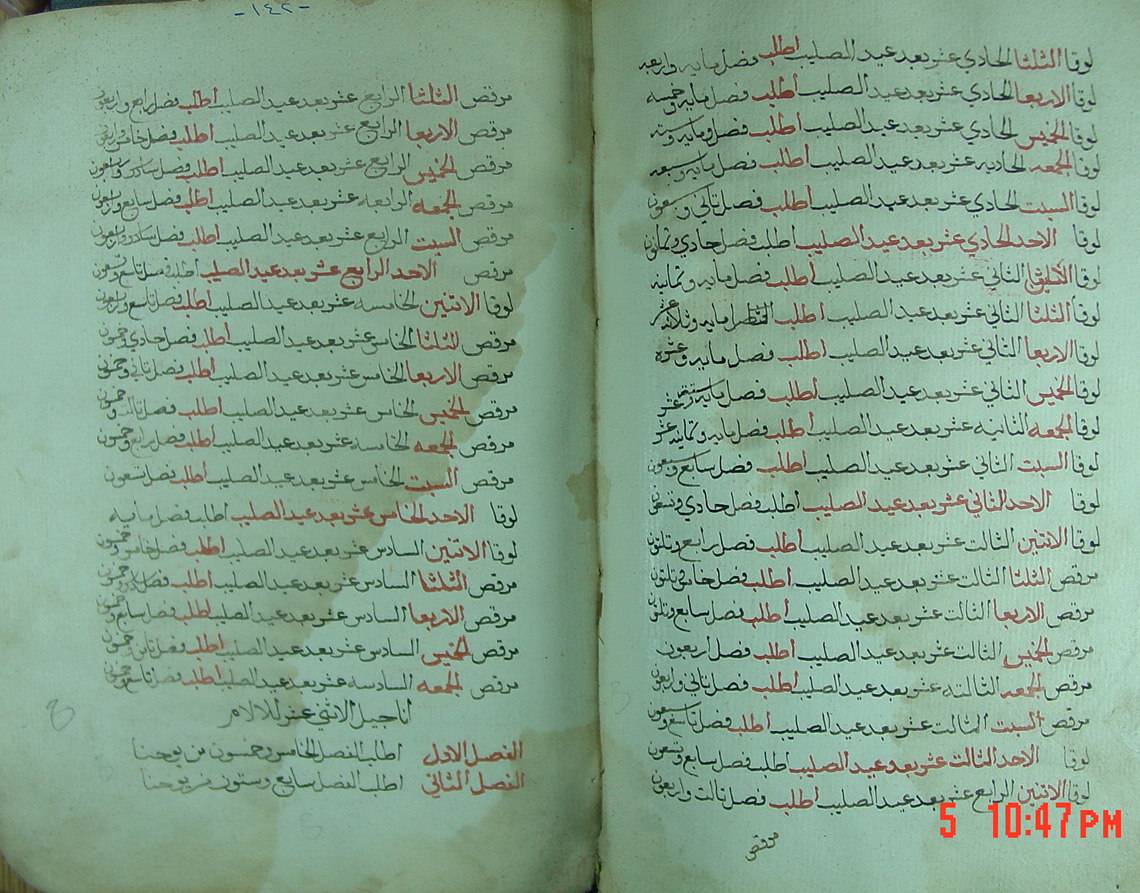 لوقا الثلثا الحادي عشر بعد عيد الصليب اطلب فصل مايه واربعه
لوقا الاربعا الحادي عشر بعد عيد الصليب اطلب فصل مايه وخمسه
لوقا الخميس الحادي عشر بعد عيد الصليب اطلب فصل مايه وسته
لوقا الجمعه الحاديه عشر بعد عيد الصليب اطلب فصل مايه وسبعه
لوقا السبت الحادي عشر بعد عيد الصليب اطلب فصل تاني وسبعون
لوقا الاحد الحادي عشر بعد عيد الصليب اطلب فصل حادي وتمانون
لوقا التاني عشر بعد عيد الصليب اطلب فصل مايه وتمانيه
لوقا الثلثا التاني عشر بعد عيد الصليب اطلب مايه وثلاثة عشر
لوقا الاربعا التاني عشر بعد عيد الصليب اطلب فصل مايه وعشره
لوقا الخميس التاني عشر بعد عيد الصليب اطلب فصل مايه وستة عشر
لوقا الجمعه التانيه عشر بعد عيد الصليب اطلب فصل مايه وتمانية عشر
لوقا السبت التاني عشر بعد عيد الصليب اطلب فصل سابع وسبعون
لوقا الاحد التاني عشر بعد عيد الصليب اطلب فصل حادي وتسعون
لوقا الاتنين التالت عشر بعد عيد الصليب اطلب فصل رابع وتلتون
مرقص الثلثا التالت عشر بعد عيد الصليب اطلب فصل حادي وتلتون
مرقص الاربعا التالت عشر بعد عيد الصليب اطلب فصل سابع وتلتون
مرقص الخميس التالت عشر بعد عيد الصليب اطلب فصل اربعون
مرقص الجمعه التالته عشر بعد عيد الصليب اطلب فصل تاني واربعون
مرقص السبت التالت عشر بعد عيد الصليب اطلب فصل تاسع وسبعون
لوقا الاحد التالت عشر بعد عيد الصليب اطلب فصل سابع وتسعون
لوقا الاتنين الرابع عشر بعد عيد الصليب اطلب فصل تالت واربعون
مرقص
5 10:47PM
-١٤٢-
مرقص الثلثا الرابع عشر بعد عيد الصليب اطلب فصل رابع واربعون
مرقص الاربعا الرابع عشر بعد عيد الصليب اطلب فصل خامس
مرقص الخميس الرابع عشر بعد عيد الصليب اطلب فصل سادس
مرقص الجمعه الرابعه عشر بعد عيد الصليب اطلب فصل سابع واربعون
مرقص السبت الرابع عشر بعد عيد الصليب اطلب فصل سادس واربعون
مرقص الاحد الرابع عشر بعد عيد الصليب اطلب فصل تاسع
لوقا الاتنين الخامسه عشر بعد عيد الصليب اطلب فصل تاسع واربعون
مرقص الثلثا الخامس عشر بعد عيد الصليب اطلب فصل حادي وخمسون
مرقص الاربعا الخامس عشر بعد عيد الصليب اطلب فصل تاني وخمسون
مرقص الخميس الخامس عشر بعد عيد الصليب اطلب فصل تالت وخمسون
مرقص الجمعه الخامسه عشر بعد عيد الصليب اطلب فصل رابع وخمسون
مرقص السبت الخامس عشر بعد عيد الصليب اطلب فصل تسعون
لوقا الاحد الخامس عشر بعد عيد الصليب اطلب فصل مايه
لوقا الاتنين السادس عشر بعد عيد الصليب اطلب فصل خامس وخمسون
مرقص الثلثا السادس عشر بعد عيد الصليب اطلب فصل سادس وخمسون
مرقص الاربعا السادس عشر بعد عيد الصليب اطلب فصل سابع وخمسون
مرقص الخميس السادس عشر بعد عيد الصليب اطلب فصل تامن وخمسون
مرقص الجمعه السادسه عشر بعد عيد الصليب اطلب فصل تاسع وخمسون
اناجيل الاتني عشر للالام
الفصل الاول اطلب الفصل الخامس وخمسون من يوحنا
الفصل التاني اطلب الفصل سابع وستون من يوحنا